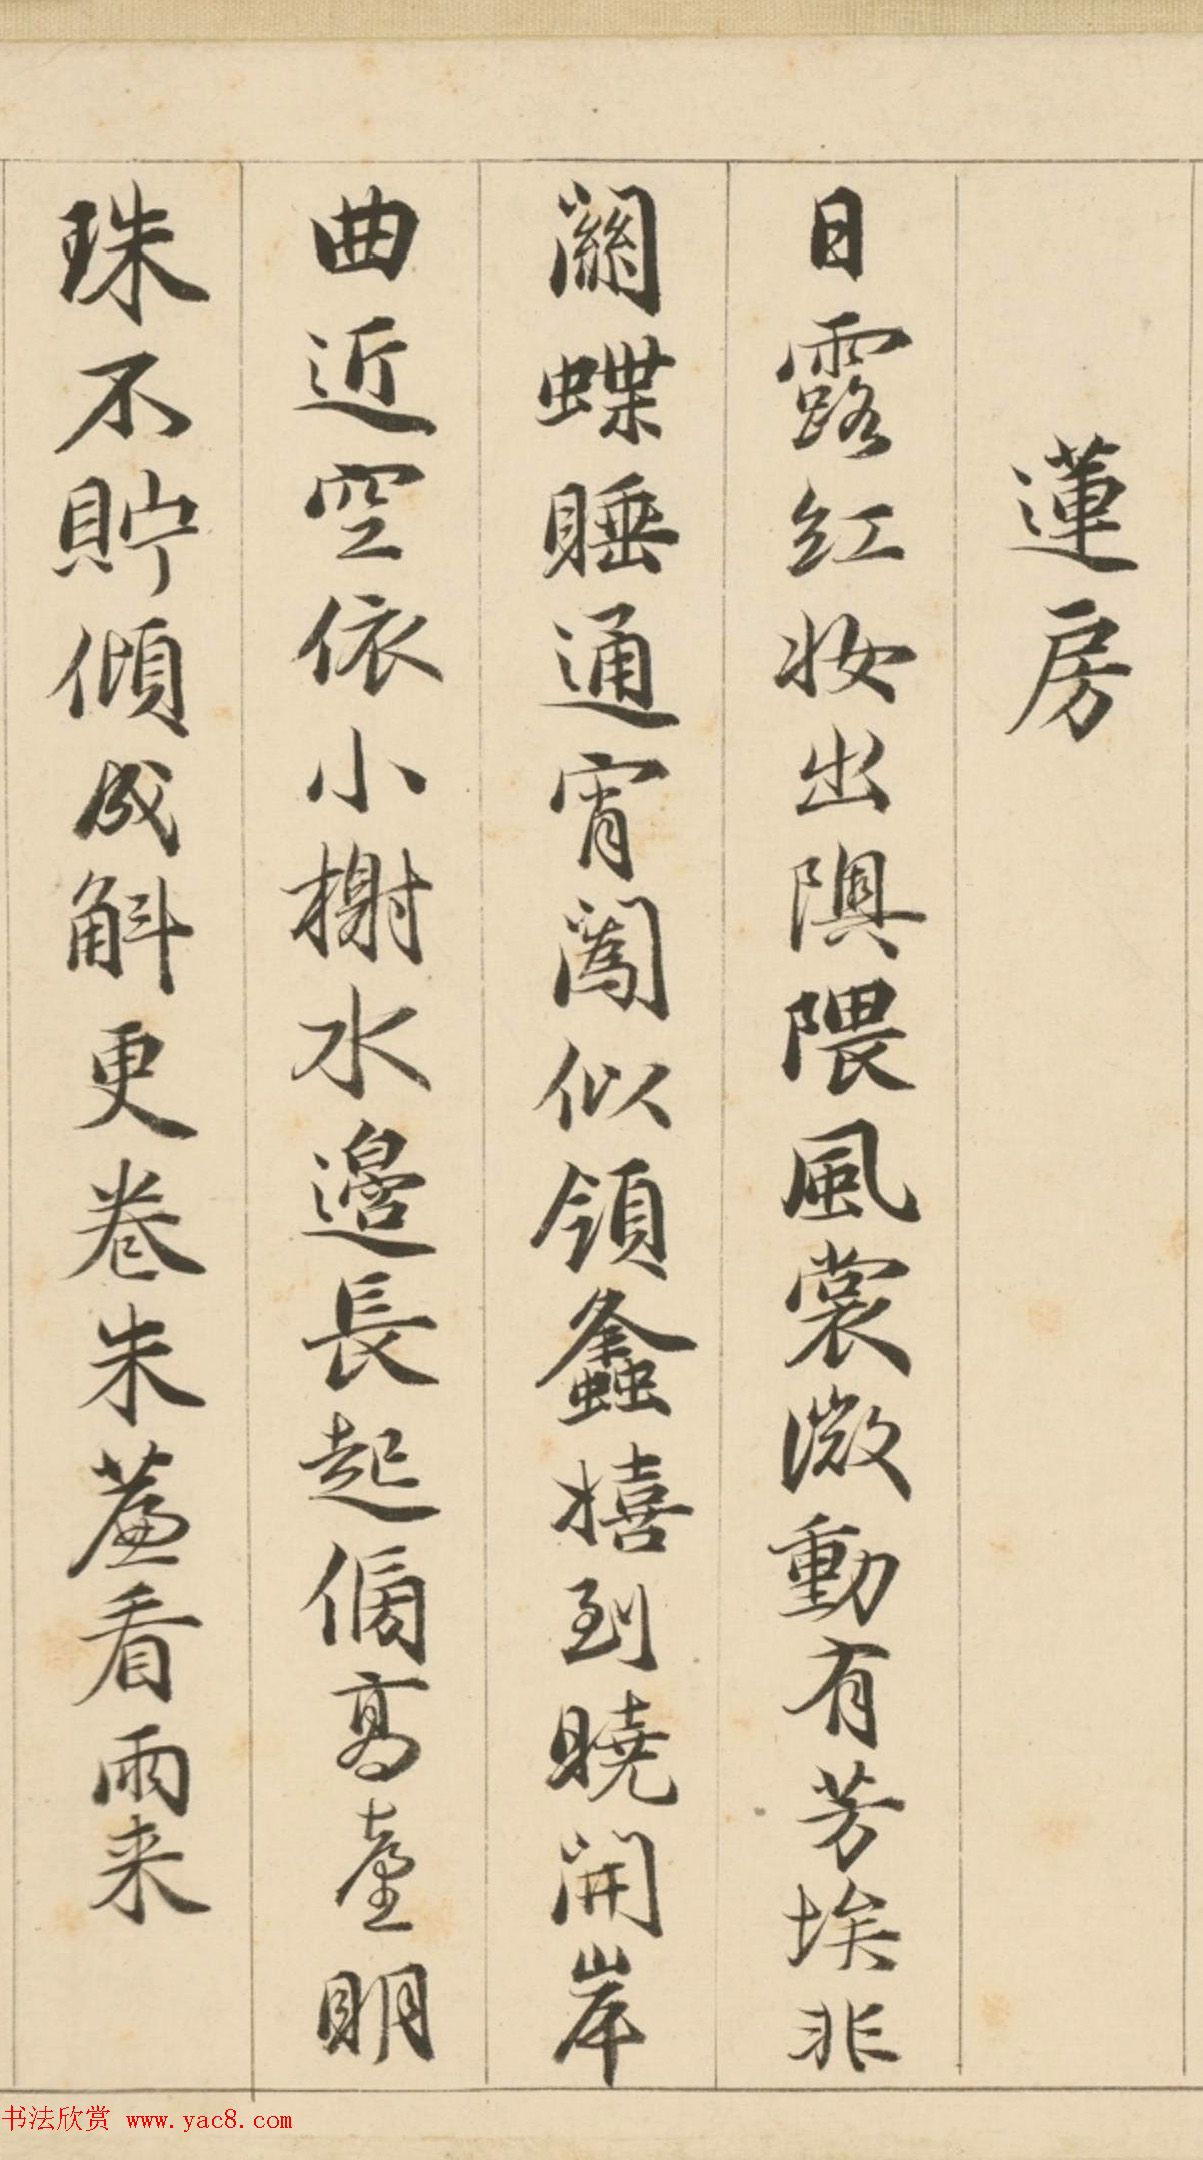 蓮房
日露紅妝出隩隈風裳微動有芳埃非
關蝶睡通宵闔似領蠭憘到曉開岸
曲近空依小榭水邊長起傍高臺明
珠不貯傾成斛更卷朱簾看雨来
书法欣赏 www.yac8.com